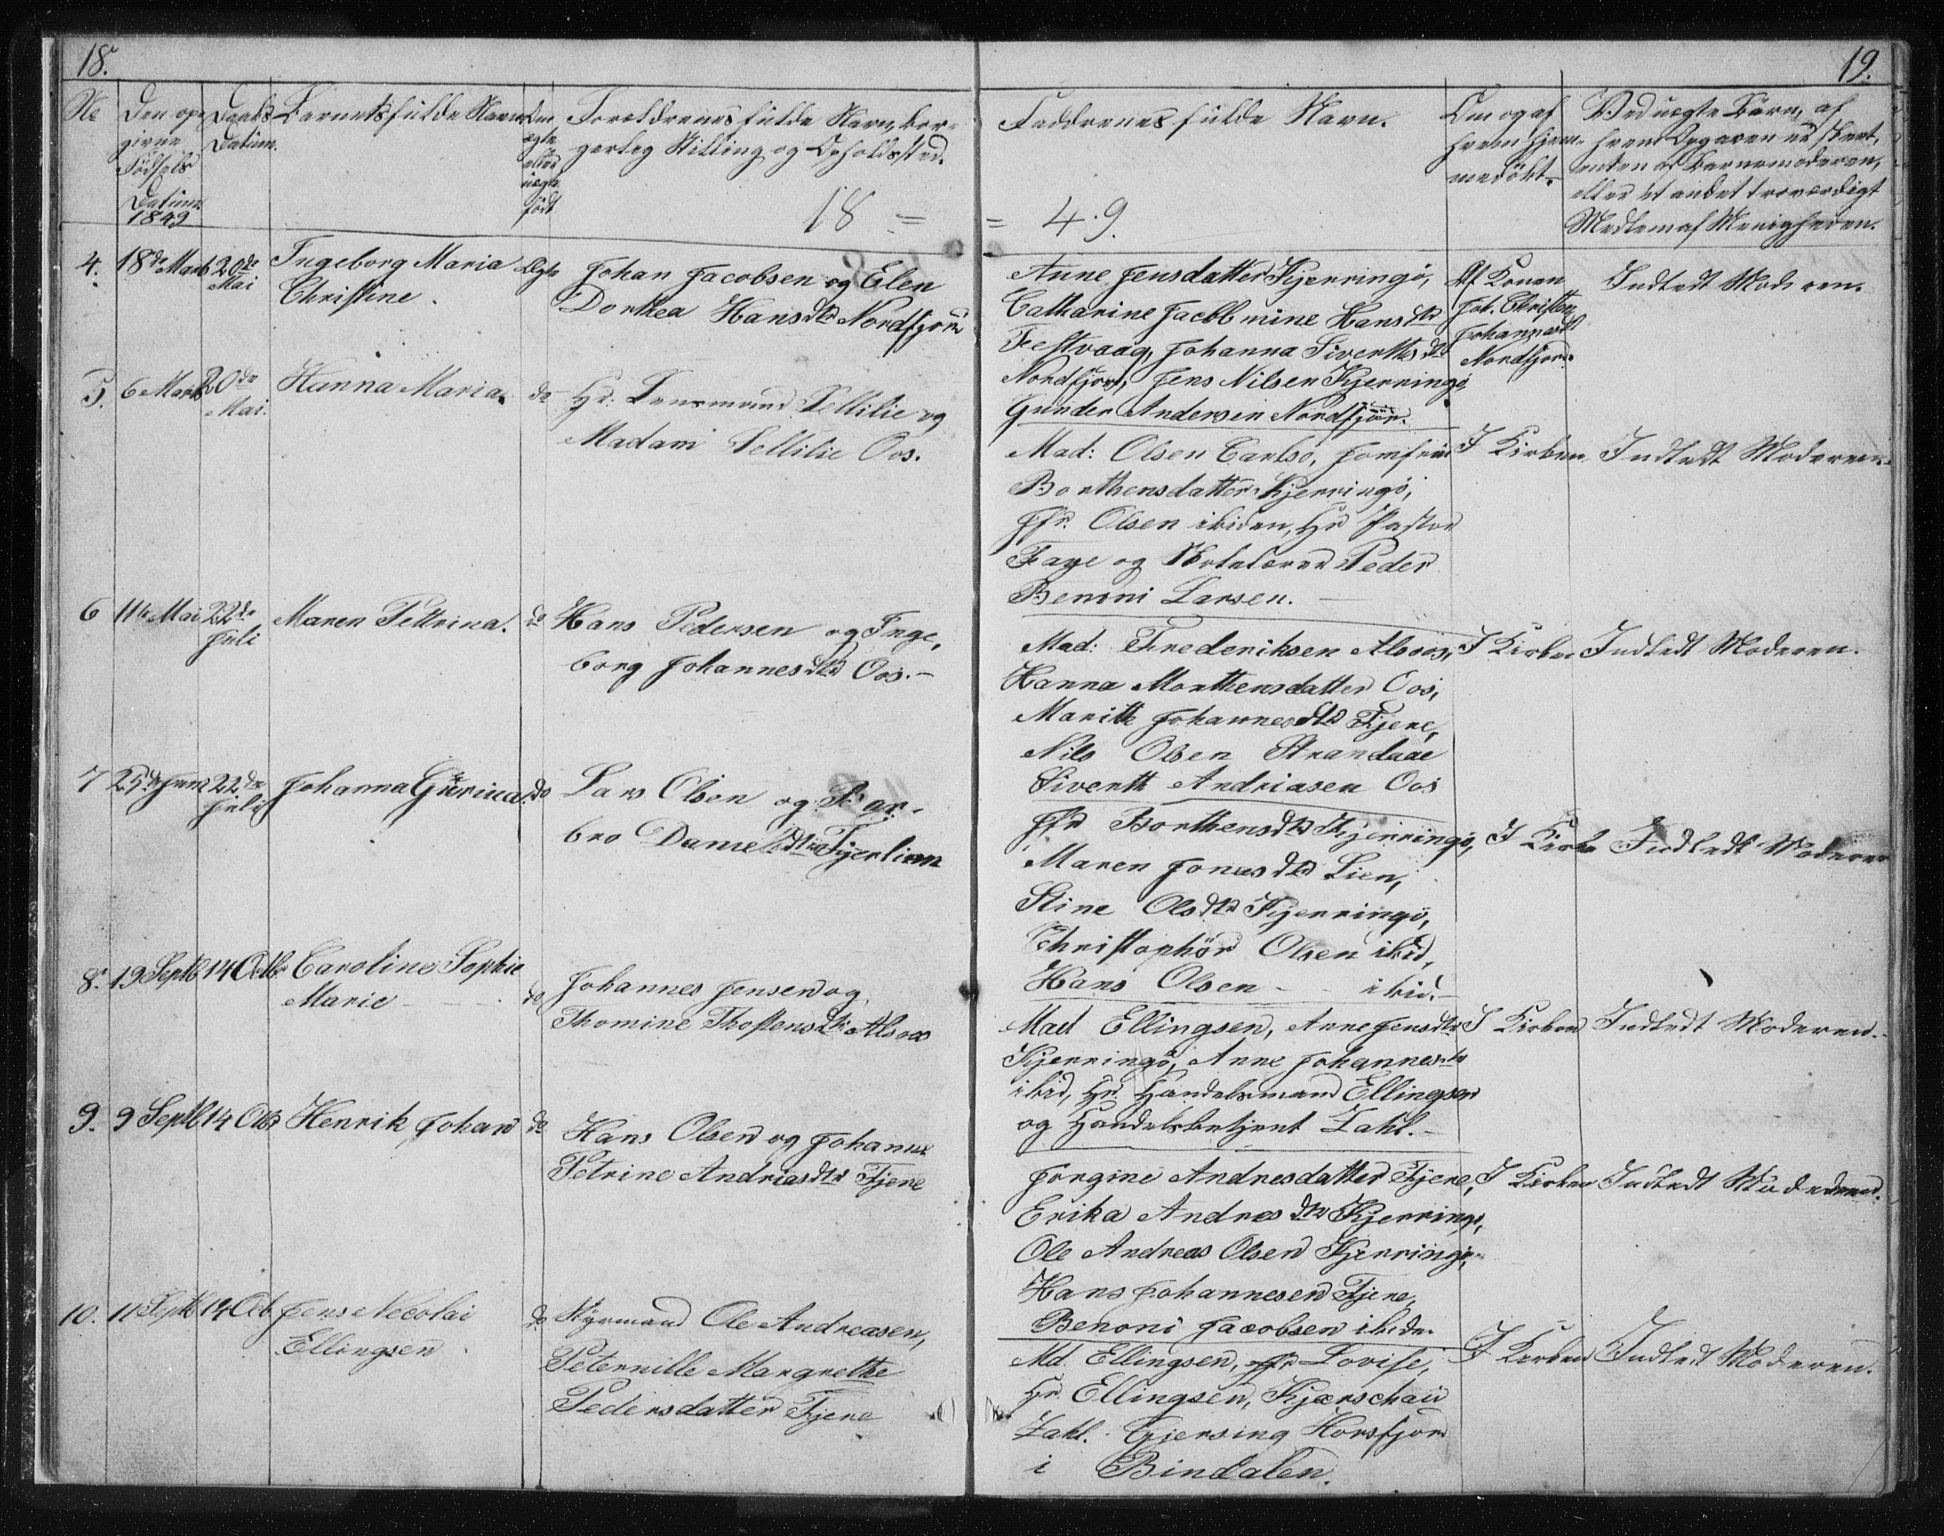 18.
19.
No
Den opgivne Födsels Datum 1849
Daabs Datum.
Barnets fulde Navn
Om ægte eller uægte født
Forældrenes fulde Navn, borgerlig Stilling og Opholdssted.
Faddrenes fulde Navn.
Om og af hvem hjemmedöbt.
Ved uægte Børn, af hvem Opgaven er skeet, enten af Barnemoderen, eller et andet troværdigt Medlem af Menigheden.
18 = = 49.
4. 18de Marts 20de Mai
Ingeborg Maria
Christine.
Ægte
Johan Jacobsen og Elen
Dorthea Hansdtr Nordfjord
Anne Jensdatter Kjerringö,
Catharine Jacobmine Hansdtr
Festvaag, Johanna Siverthsdtr
Nordfjord, Jens Nilsen Kjerringö
Gunder Andersen Nordfjor.
Af Konen
Joh. Christen
Nordfjord.
Indledt Moderen.
5. 6 Marts 20de Mai.
Hanna Maria.
do
Hr. Lensmand Sellilie og
Madam Sellilie Oos.
Mad: Olsen Carlsö, Jomfru
Borthensdatter Kjerringö,
Jfr. Olsen ibiden, Hr Pastor
Faye og Skolelærer Peder
Benoni Larsen.
I Kirken
Indledt Moderen.
6 11te Mai 22de Juli
Maren Pettrina.
do
Hans Pedersen og Inge,
borg Johannesdtr Oos.
Mad: Frederiksen Alsoos,
Hanna Morthensdatter Oos,
Marith Johannesdtr Fjere,
Nils Olsen Strandaae
Siverth Andriasen Oos
I Kirken
Indledt Moderen.
7 25de Juni 22de Juli
Johanna Gurina
do
Lars Olsen og Bar-
bro Danielsdtr Tjerlien
Jfr Borthensdtr Kjerringö,
Maren Jonasdtr Lien,
Stine Olsdtr Kjerringö,
Christophör Olsen ibid,
Hans Olsen - ibid.
I Kirke
Indledt Moderen
8. 19 Septb 14 Octbr
Caroline Sophie
Marie
do
Johannes Jensen og
Thomine Thostensdtr Alsoos
Mad Ellingsen, Anne Jensdtr
Kjerringö, Anne Johannesdtr
ibid, Hr Handelsmand Ellingsen
og Handelsbetjent Zahl.
I Kirken
Indledt Moderen.
9. 9 Septb 14 Octb
Henrik Johan
do
Hans Olsen og Johanna
Petrine Andriasdtr Fjere
Jorgine Andresdatter Fjere,
Erika Andreasdtr Kjerringö,
Ole Andreas Olsen Kjerringö,
Hans Johannesen Fjere,
Benoni Jacobsen ibide.
I Kirken
Indledt Moderen.
10. 11 Septb 14 Octb
Jens Necolai
Ellingsen
do
Styrmand Ole Andreasen,
Peternille Margrethe
Pedersdatter Fjere
Md. Ellingsen, Jfr Lovise,
Hr. Ellingsen, Kjærschau
Zahl. Gjersing Horsfjord
i Bindalen.
I Kirken
Indledt Moderen.